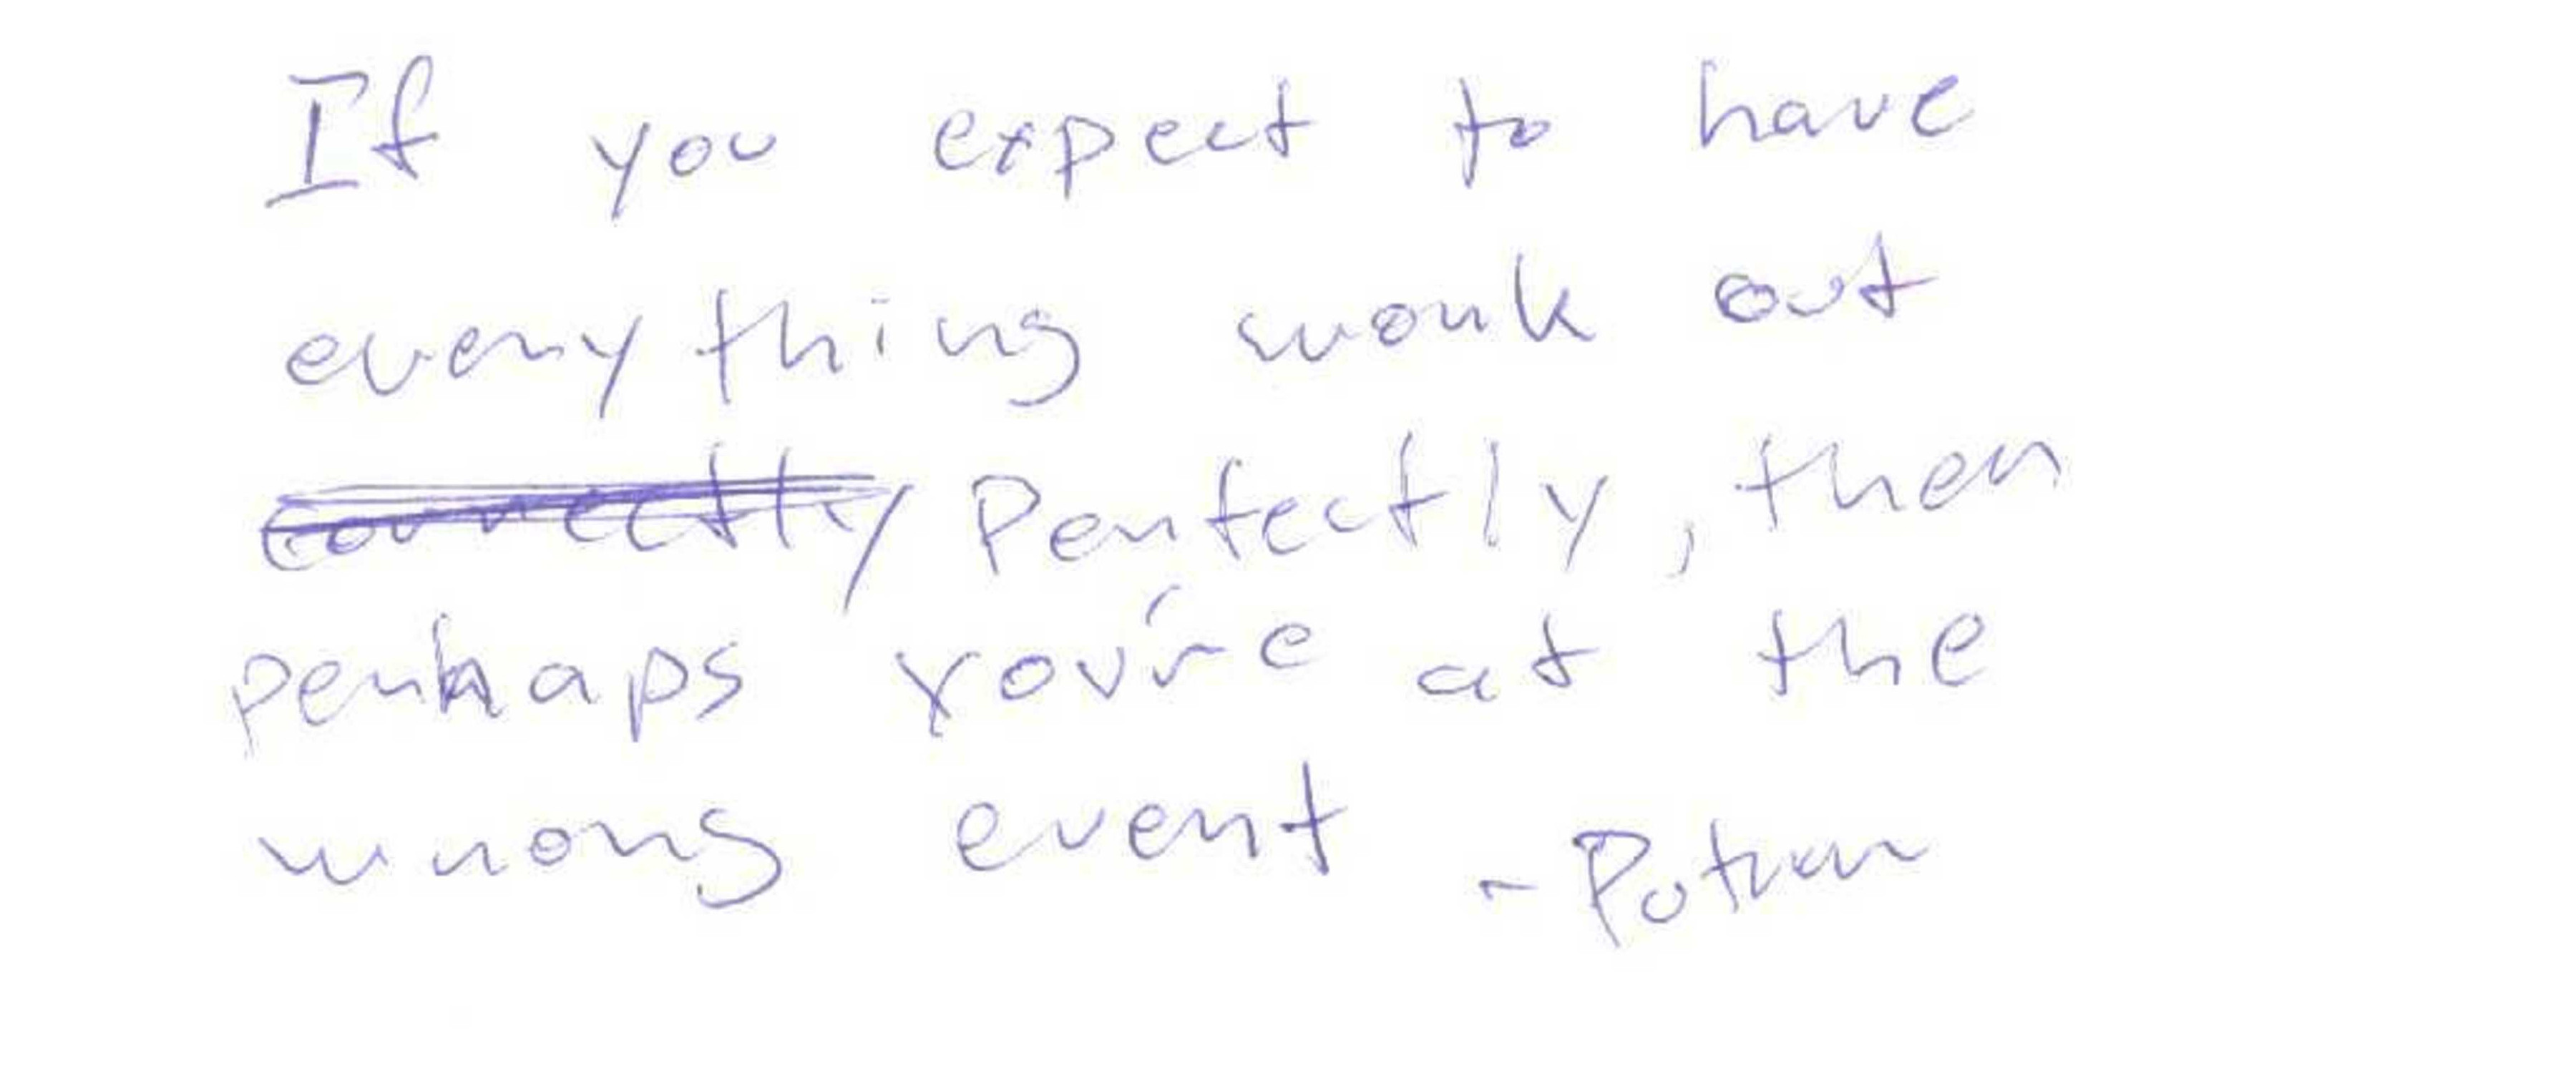 If you expect to have
everything work out
correctly Perfectly, then
perhaps you're at the
wrong event -